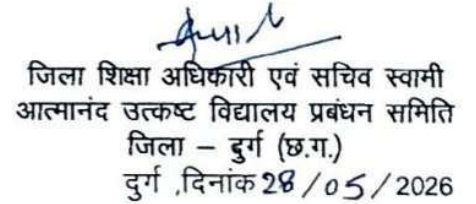 जिला शिक्षा अधिकारी एवं सचिव स्वामी
आत्मानंद उत्कष्ट विद्यालय प्रबंधन समिति
जिला – दुर्ग (छ.ग.)
दुर्ग ,दिनांक 28 / 05 / 2026